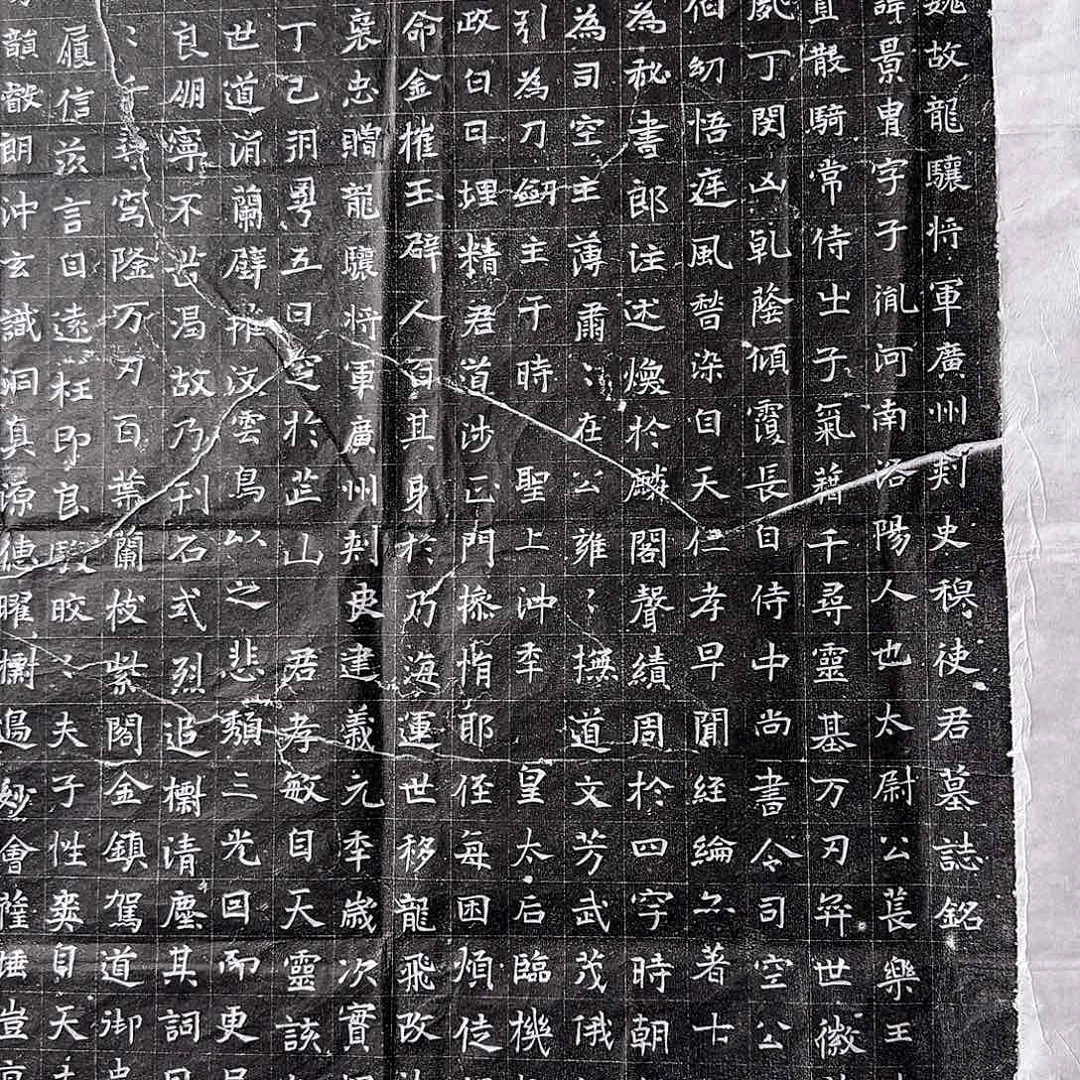 魏故龍驤將軍廣州刺史穆使君墓誌銘
諱景胄字子胤河南洛陽人也太尉公萇樂王
直散騎常侍出子氣藉千尋靈基万刃弈世徽
夙丁閔凶乹蔭傾霞長自侍中尚書令司空公
伯幼悟庭風朁染自天仁孝早聞経綸夙著士
為祕書郎注述煥於麟閣聲績周於四字時朝
為司空主薄肅〻在公雍〻撫道文芳武茂俄
引為刀劒主于時聖上沖秊皇太后臨機
政日日埋精君道涉正門捺惰耶侄每困煩徒
命金摧玉辟人百其身於乃海運世移龍飛改
褒忠贈龍驤將軍廣州刺史建義元秊歲次實
丁已朔粤五日窆於芷山君孝敏自天靈該
世道淌蘭摧汶雲鳥以之悲頹三光回而更
良朋寧不苦渴故乃刊石式烈追櫥清塵其詞
〻千尋穹隆万刃百葉蘭枝紫閣金鎮駕道御
履信茲言日遠枉即良駿晈〻夫子性奭自天
韻叡朗沖玄識洞真源德曜櫥過妙會